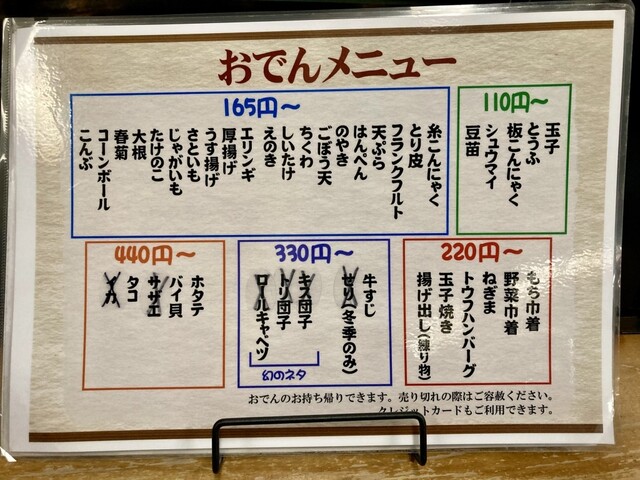 おでんメニュー
110円～
玉子
とうふ
板こんにゃく
シュウマイ
豆苗
165円～
糸こんにゃく
とり皮
フランクフルト
天ぷら
はんぺん
のやき
ごぼう天
ちくわ
しいたけ
えのき
エリンギ
厚揚げ
うす揚げ
さといも
じゃがいも
たけのこ
大根
春菊
コーンボール
こんぶ
220円～
もち巾着
野菜巾着
ねぎま
トウフハンバーグ
玉子焼き
揚げ出し(練り物)
330円～
牛すじ
ゼリ(冬季のみ)
キス団子
トリ団子
ロールキャベツ
幻のネタ
440円～
ホタテ
バイ貝
サザエ
タコ
おでんのお持ち帰りできます。売り切れの際はご容赦ください。
クレジットカードもご利用できます。